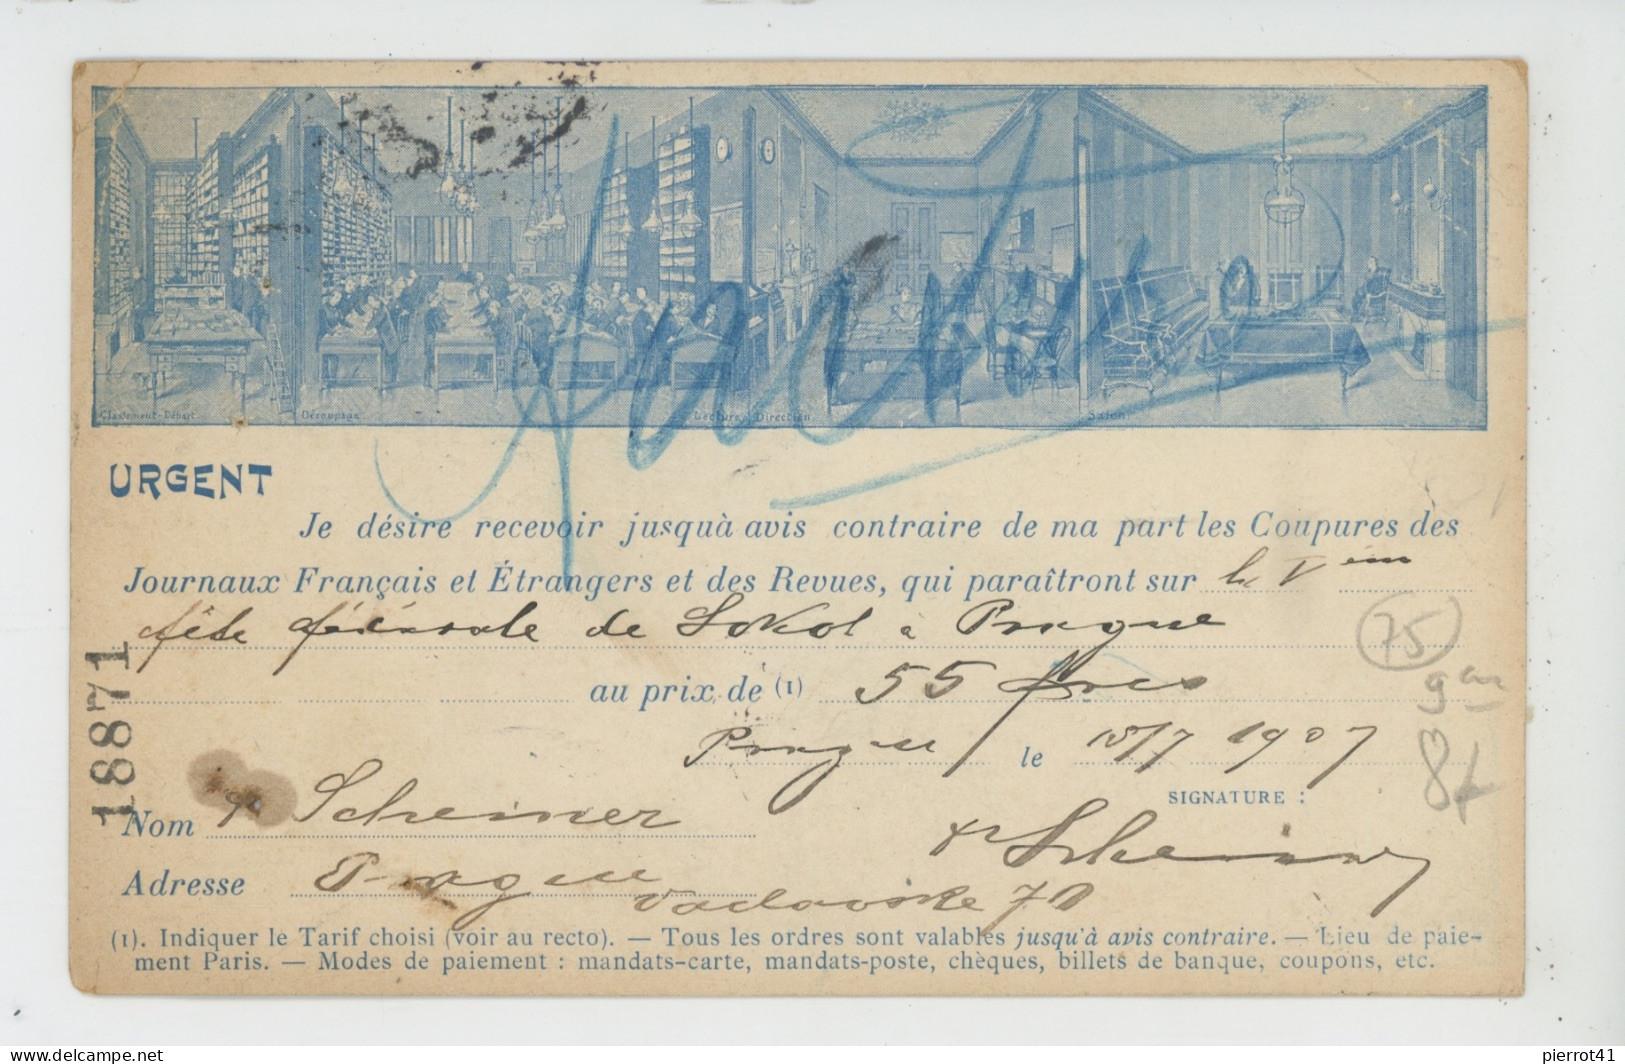 Classement-Départ
Découpage
Lecture
Direction
Salon
URGENT
Je désire recevoir jusquà avis contraire de ma part les Coupures des
Journaux Français et Étrangers et des Revues, qui paraîtront sur le Vème
fête fédérale de Sokol à Prague
au prix de (1) 55 francs
Prague le 15/7 1907
SIGNATURE :
Nom Dr Scheiner
Dr Scheiner
Adresse Prague
(1). Indiquer le Tarif choisi (voir au recto). — Tous les ordres sont valables jusqu'à avis contraire. — Lieu de paie-
ment Paris. — Modes de paiement : mandats-carte, mandats-poste, chèques, billets de banque, coupons, etc.
18871
75
delcampe.net
pierrot41